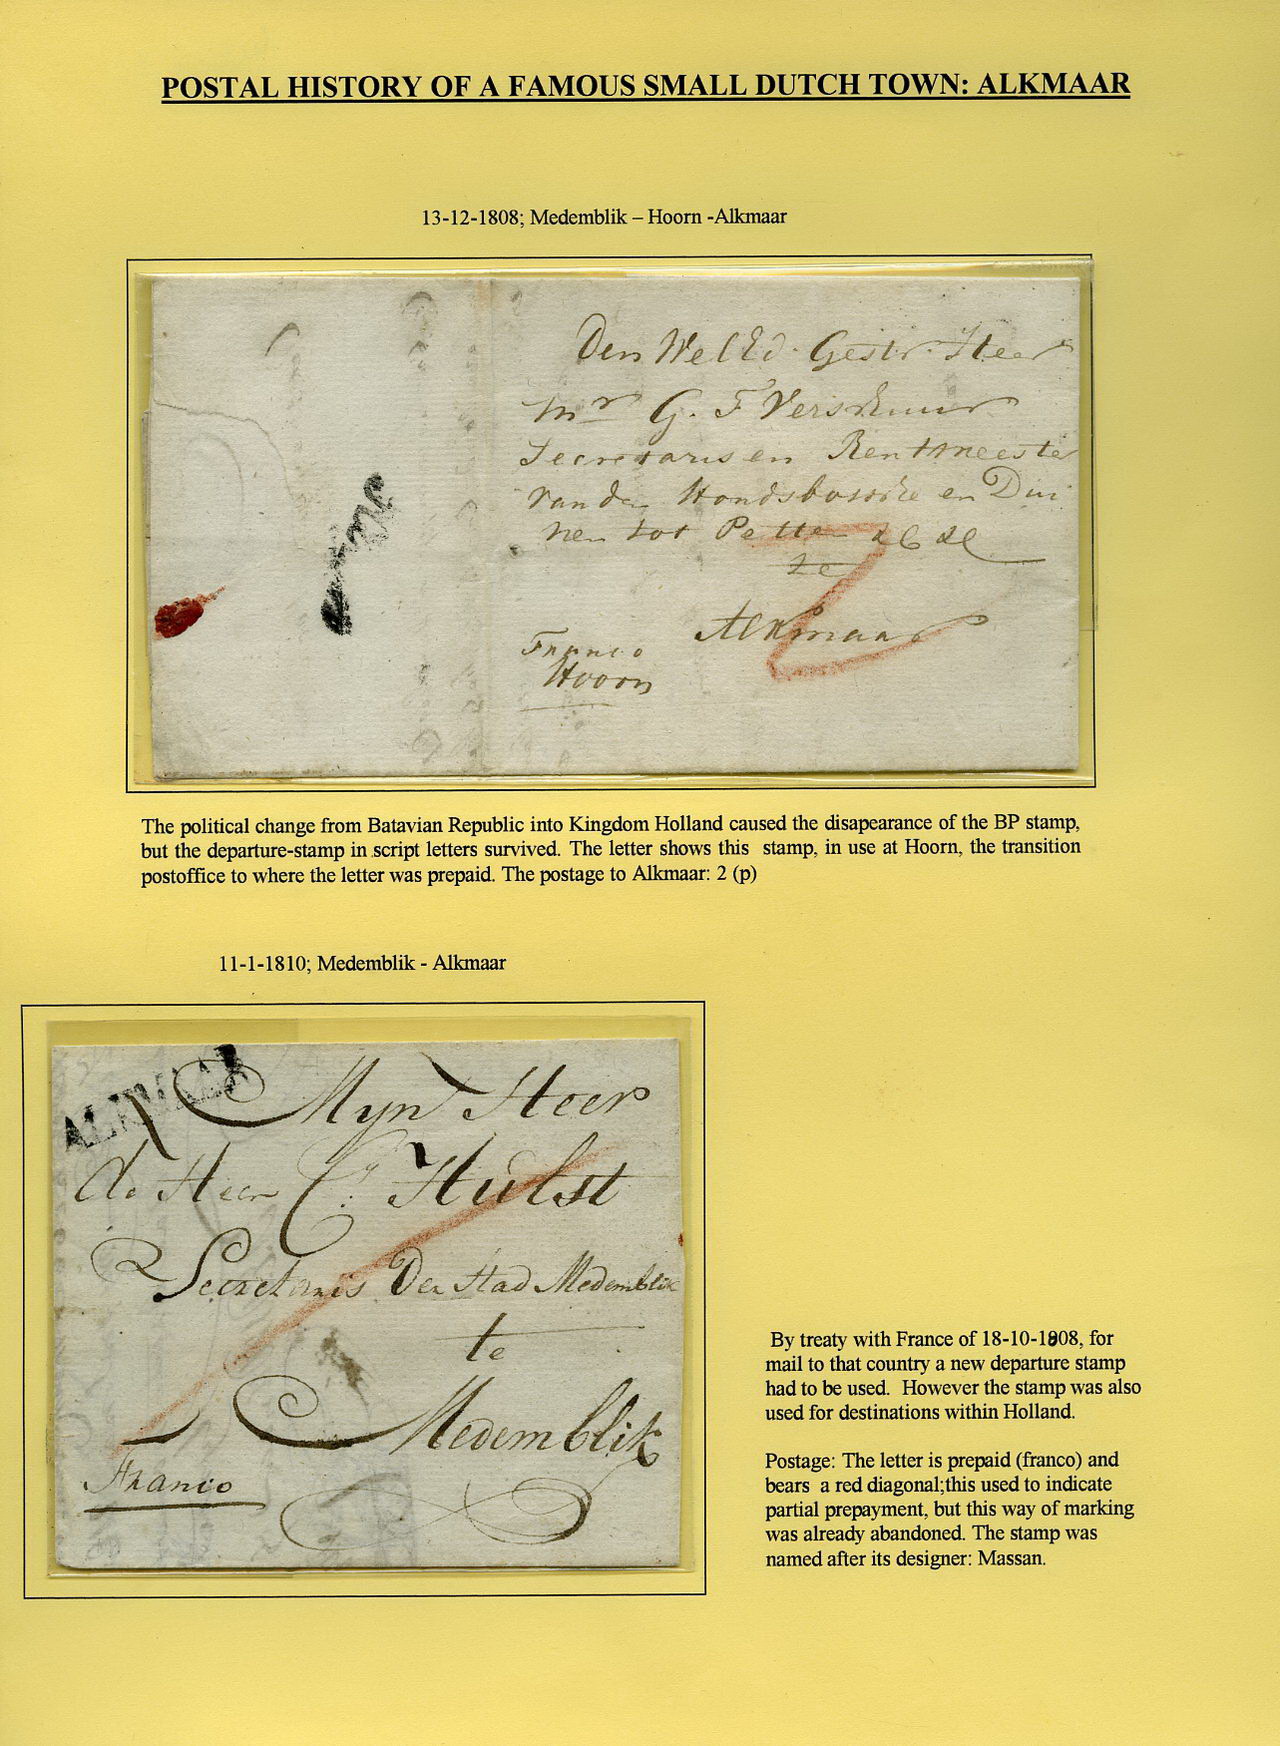 POSTAL HISTORY OF A FAMOUS SMALL DUTCH TOWN: ALKMAAR
13-12-1808; Medemblik – Hoorn -Alkmaar
Den WelEd. Gestr. Heer
Mr G. F Verschuur
Secretaris en Rentmeester
van de Hondsbossche en Dui
nen tot Petten
te
Alkmaar
Franco
Hoorn
The political change from Batavian Republic into Kingdom Holland caused the disapearance of the BP stamp,
but the departure-stamp in script letters survived. The letter shows this stamp, in use at Hoorn, the transition
postoffice to where the letter was prepaid. The postage to Alkmaar: 2 (p)
11-1-1810; Medemblik - Alkmaar
ALKMAAR
Myn Heer
de Heer C. Hulst
Secretaris Der Stad Medemblik
te
Medemblik
Franco
By treaty with France of 18-10-1808, for
mail to that country a new departure stamp
had to be used. However the stamp was also
used for destinations within Holland.
Postage: The letter is prepaid (franco) and
bears a red diagonal;this used to indicate
partial prepayment, but this way of marking
was already abandoned. The stamp was
named after its designer: Massan.